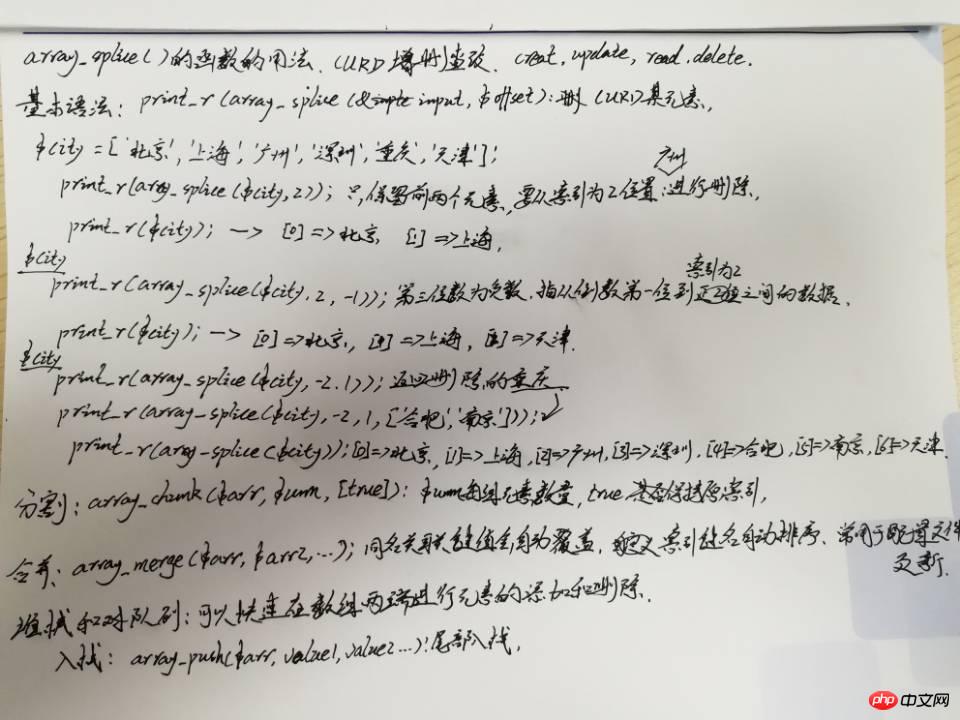 array_splice()的函数的用法、CURD增删查改. creat, update, read, delete.
基本语法: print_r(array_splice(&input, $offset):删 CURD某元素,
$city = ['北京','上海','广州','深圳','重庆','天津'];
广州
print_r(array_splice($city,2)); 只保留前两个元素,要从索引为2位置进行删除,
print_r($city); —> [0]=>北京, [1]=>上海,
$city
索引为2
print_r(array_splice($city,2,-1)); 第三位数为负数,指从倒数第一位到之间的数据,
print_r($city); —> [0]=>北京, =>上海, =>天津.
$city
print_r(array_splice($city,-2,1)); 返回删除的重庆
print_r(array_splice($city,-2,1,['合肥','南京']));
print_r(array_splice($city)); [0]=>北京, [1]=>上海, [2]=>广州, [3]=>深圳, [4]=>合肥, [5]=>南京, [6]=>天津.
分割: array_chunk($arr, $num, [true]): $num每组元素数量, true是否保持原索引,
合并: array_merge($arr, $arr2, ...); 同名关联键值会自动覆盖, 索引键名自动排序、常用于配置文件
更新.
堆栈和对队列:可以快速在数组两端进行元素的添加和删除.
入栈: array_push($arr, value1, value2 ...):尾部入栈,
php 中文网